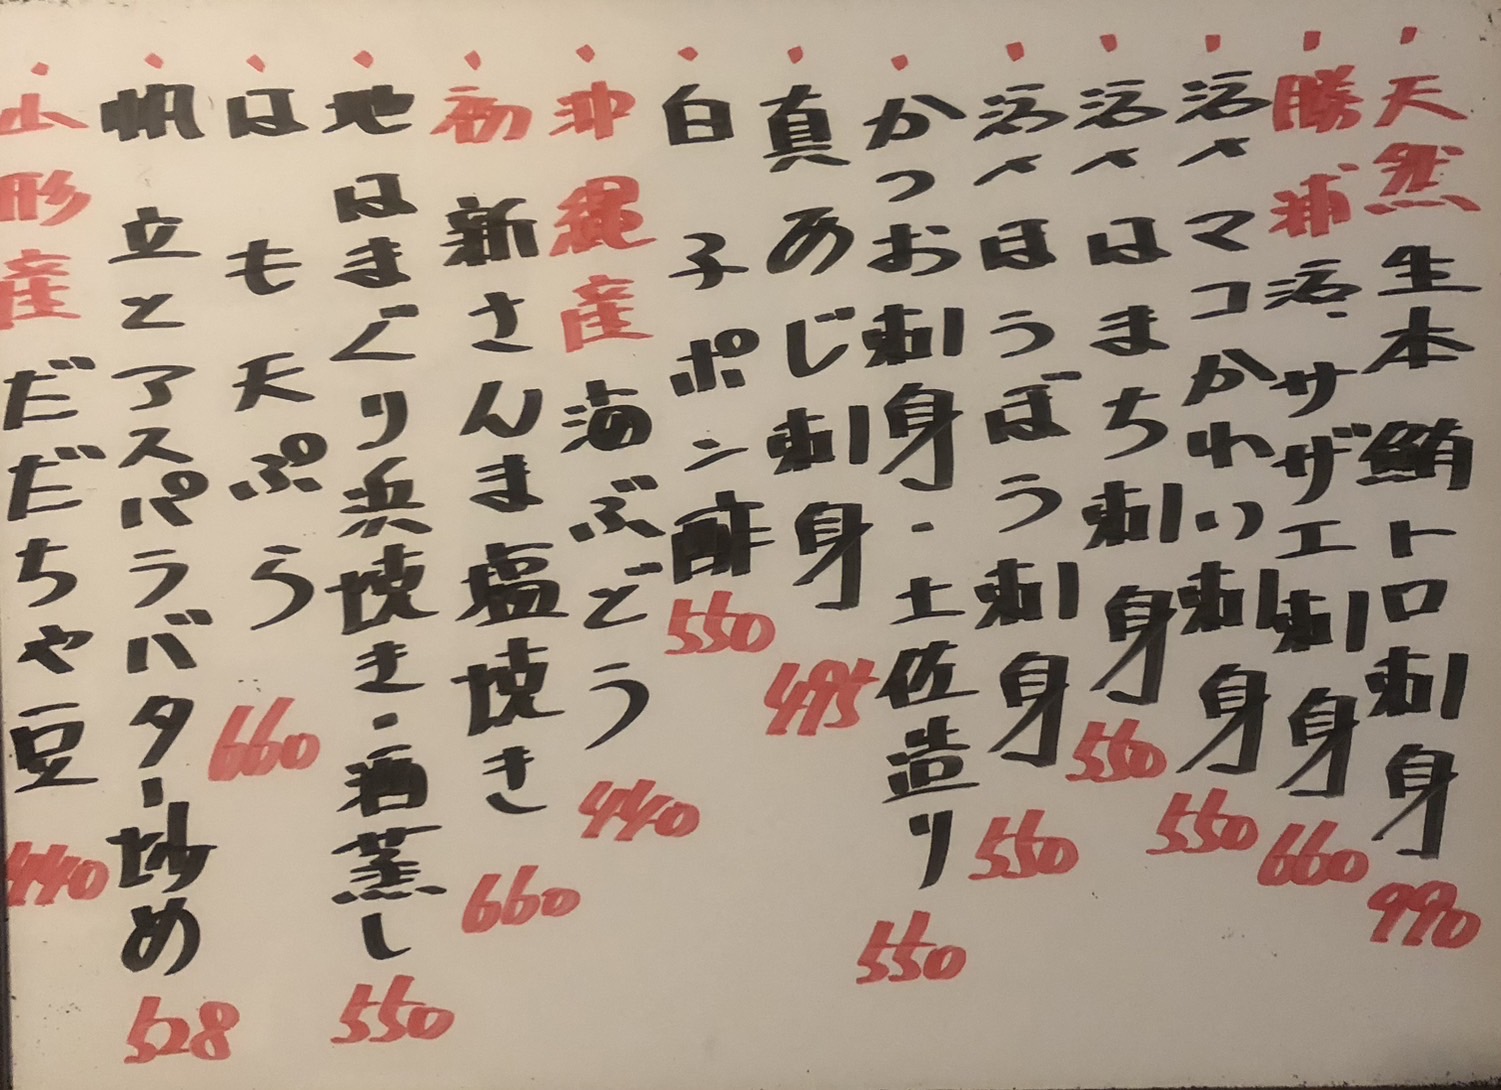 ・天然生本鮪トロ刺身 990
・勝浦活サザエ刺身 660
・活〆マコかわい刺身 550
・活〆はまち刺身 550
・活〆ほうぼう刺身 550
・かつお刺身・土佐造り 550
・真あじ刺身 495
・白子ポン酢 550
・沖縄産海ぶどう 440
・初新さんま塩焼き 660
・地はまぐり浜焼き・酒蒸し 550
・はも天ぷら 660
・帆立とアスパラバター炒め 528
・山形産だだちゃ豆 440